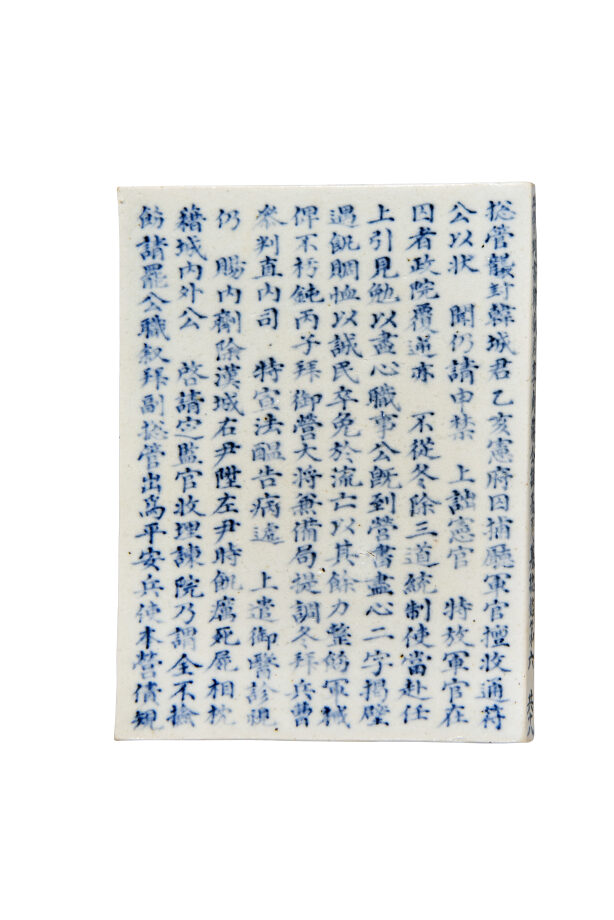 捴管襲封韓城君乙亥憲府因捕廳軍官擅收通符
公以狀 聞仍請申禁 上詘憲官 特放軍官在
囚者政院覆逆亦 不從冬除三道統制使當赴任
上引見勉以盡心職事公旣到營書盡心二字揭壁
遇飢賙恤以誠民卒免於流亡以其餘力繁飭軍械
俾不朽鈍丙子拜御營大將兼備局提調冬拜兵曹
叅判直內司 特宣法醞告病遞 上遣御醫診視
仍 賜內劑除漢城右尹陞左尹時飢癘死屍相枕
藉城內外公 啓請定監官收埋諫院乃謂全不撿
飭請罷公職叙拜副捴管出爲平安兵使本營債規